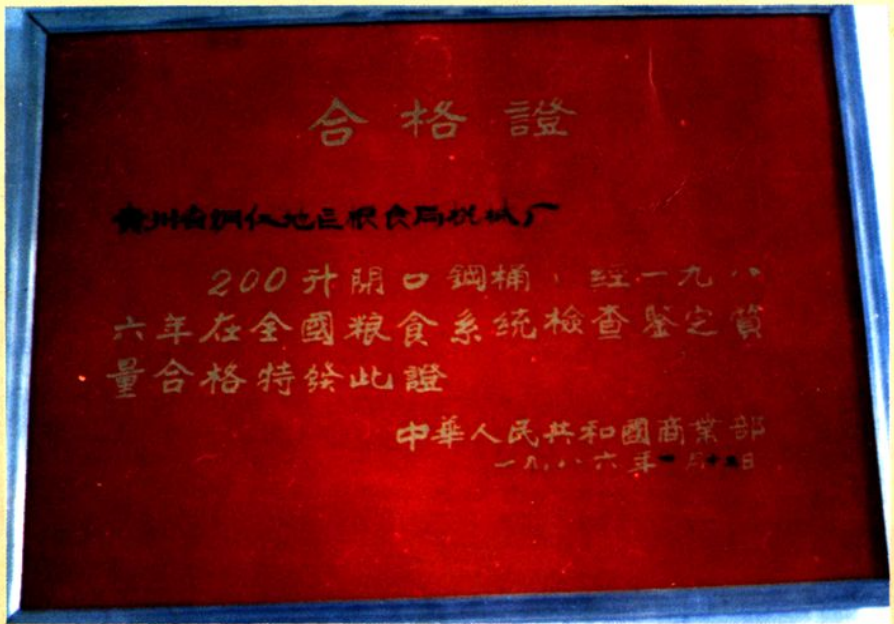 合格證
貴州省銅仁地区粮食局机械厂
200升開口鋼桶，經一九八
六年在全國粮食系統檢查鑒定質
量合格特發此證
中華人民共和國商業部
一九八六年 月十 日